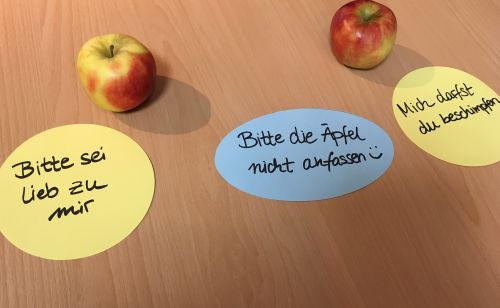 Bitte sei
lieb zu
mir
Bitte die Äpfel
nicht anfassen☺
Mich darfst
du beschimpfen